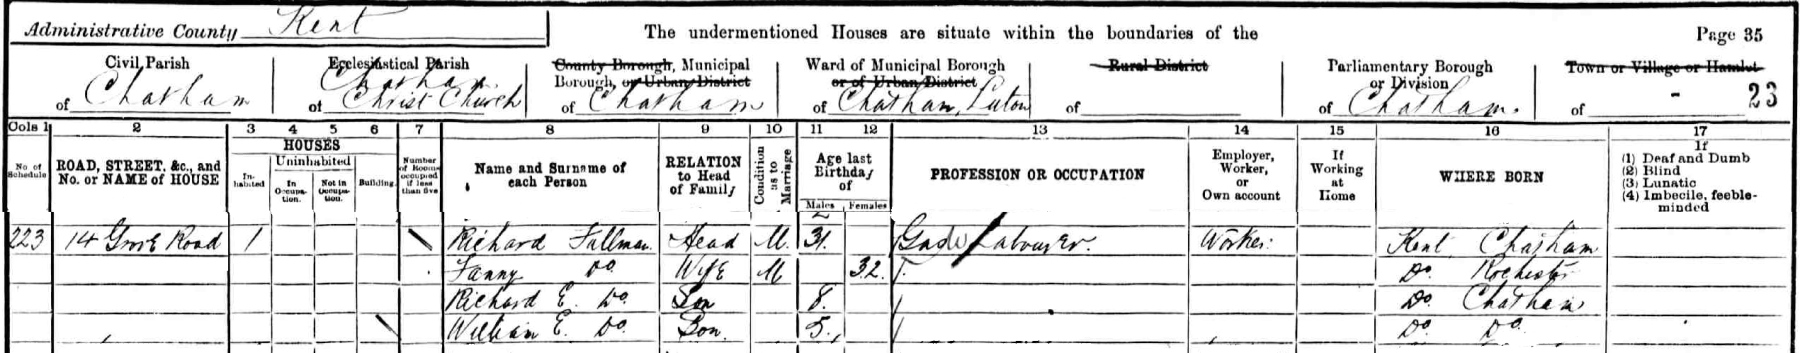 Administrative County Kent
The undermentioned Houses are situate within the boundaries of the
Page 35
Civil Parish
of Chatham
Ecclesiastical Parish
of Chatham Christ Church
County Borough, Municipal
Borough, or Urban District
of Chatham
Ward of Municipal Borough
or of Urban District
of Chatham, Luton
Rural District
of
Parliamentary Borough
or Division
of Chatham.
Town or Village or Hamlet
of - 23
Cols 1 2 3 4 5 6 7 8 9 10 11 12 13 14 15 16 17
No. of Schedule
ROAD, STREET, &c., and
No. or NAME of HOUSE
HOUSES
Inhabited
Uninhabited
In Occupation.
Not in Occupation.
Building.
Number of Rooms occupied if less than five
Name and Surname of
each Person
RELATION
to Head
of Family
Condition as to Marriage
Age last
Birthday
of
Males Females
PROFESSION OR OCCUPATION
Employer,
Worker,
or
Own account
If
Working
at
Home
WHERE BORN
If
(1) Deaf and Dumb
(2) Blind
(3) Lunatic
(4) Imbecile, feeble-
minded
223 14 Grove Road 1 Richard Fullman Head M. 31. Gas Labourer. Worker. Kent Chatham
Fanny Do. Wife M 32. Do. Rochester
Richard E. Do. Son 8. Do. Chatham
William E. Do. Son 5. Do. Do.